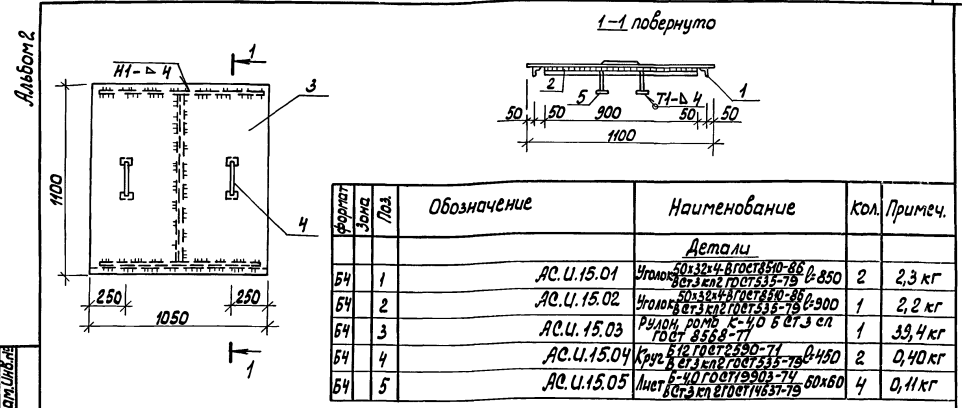 Альбом 2
1-1 повернуто
1
Н1-⊳ 4
3
2
5
Т1-⊳ 4
1
50
50
900
50
50
1100
1100
4
250
250
1050
1
формат Зона Поз. Обозначение Наименование Кол. Примеч.
Детали
Б4 1 АС.И.15.01 Уголок 50х32х4-В ГОСТ 8510-86 / ВСт3кп2 ГОСТ 535-79 ℓ=850 2 2,3 кг
Б4 2 АС.И.15.02 Уголок 50х32х4-В ГОСТ 8510-86 / ВСт3кп2 ГОСТ 535-79 ℓ=900 1 2,2 кг
Б4 3 АС.И.15.03 Рулон, ромб К-4,0 Б СТ3 сп ГОСТ 8568-77 1 39,4 кг
Б4 4 АС.И.15.04 Круг Б12 ГОСТ 2590-71 / ВСт3кп2 ГОСТ 535-79 ℓ=450 2 0,40 кг
Б4 5 АС.И.15.05 Лист Б-4,0 ГОСТ 19903-74 / ВСт3кп2 ГОСТ 14637-79 60х60 4 0,11 кг